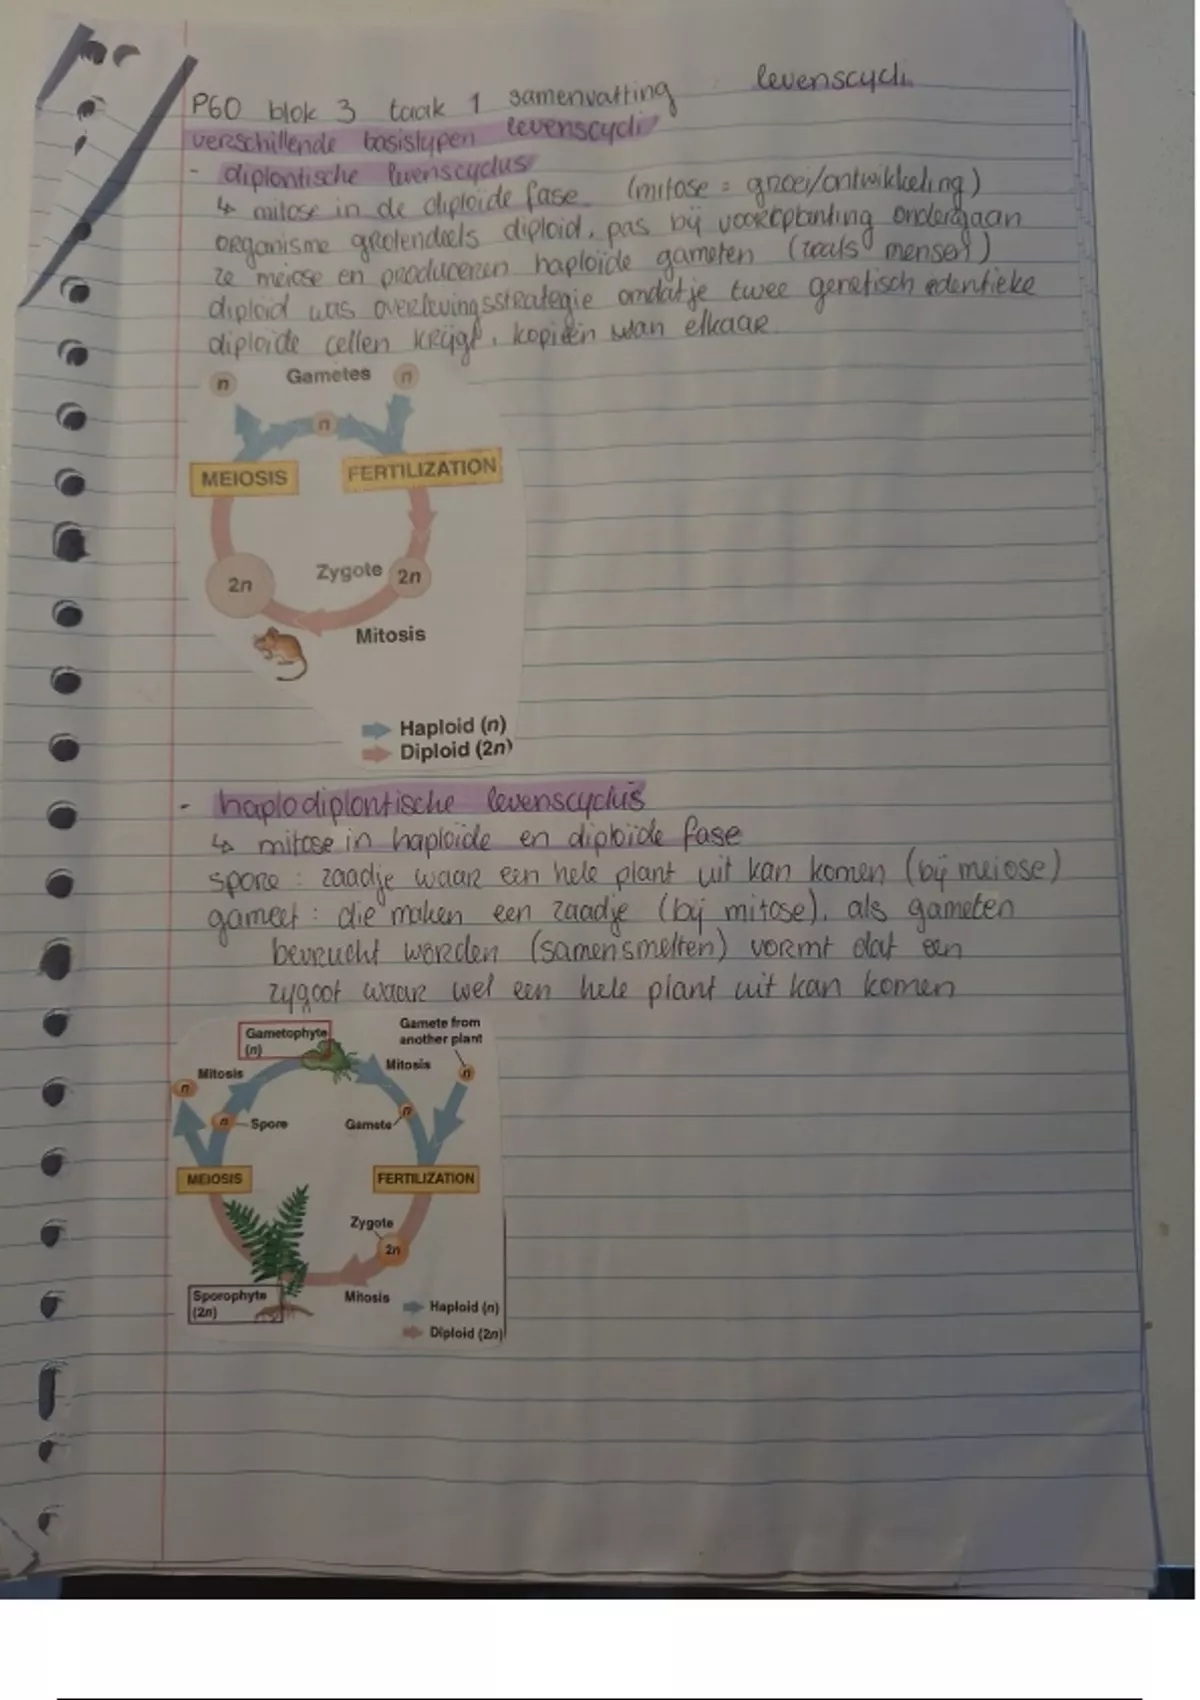 levenscycli
PGO blok 3 taak 1 samenvatting
verschillende basistypen levenscycli
- diplontische levenscyclus
↳ mitose in de diploide fase (mitose = groei/ontwikkeling)
organisme grotendeels diploid, pas bij voortplanting ondergaan
ze meiose en produceren haploïde gameten (zoals mensen)
diploid was overlevingsstrategie omdat je twee genetisch identieke
diploide cellen krijgt, kopieën van elkaar
n Gametes n
n
MEIOSIS FERTILIZATION
2n Zygote 2n
Mitosis
Haploid (n)
Diploid (2n)
- haplodiplontische levenscyclus
↳ mitose in haploïde en diploïde fase
spore : zaadje waar een hele plant uit kan komen (bij meiose)
gameet : die maken een zaadje (bij mitose), als gameten
bevrucht worden (samensmelten) vormt dat een
zygoot waar wel een hele plant uit kan komen
Gametophyte
(n)
Gamete from
another plant
Mitosis Mitosis
n n
n Spore Gamete n
MEIOSIS FERTILIZATION
Zygote
2n
Sporophyte
(2n)
Mitosis
Haploid (n)
Diploid (2n)